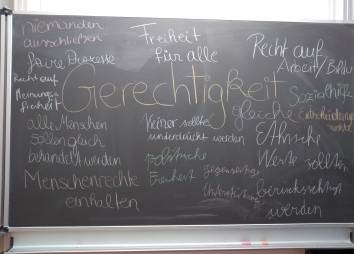 niemanden
ausschließen
faire Proteste
Recht auf
Meinungs-
freiheit
Freiheit
für alle
Recht auf
Arbeit/Bildu
Gerechtigkeit
Sozialhilfe
gleiche
alle Menschen
sollen gleich
behandelt werden
Menschenrechte
einhalten
Keiner sollte
unterdrückt werden
politische
Freiheit
gegenseitige
Unterstützung
Ethnische
Werte sollten
berücksichtigt
werden